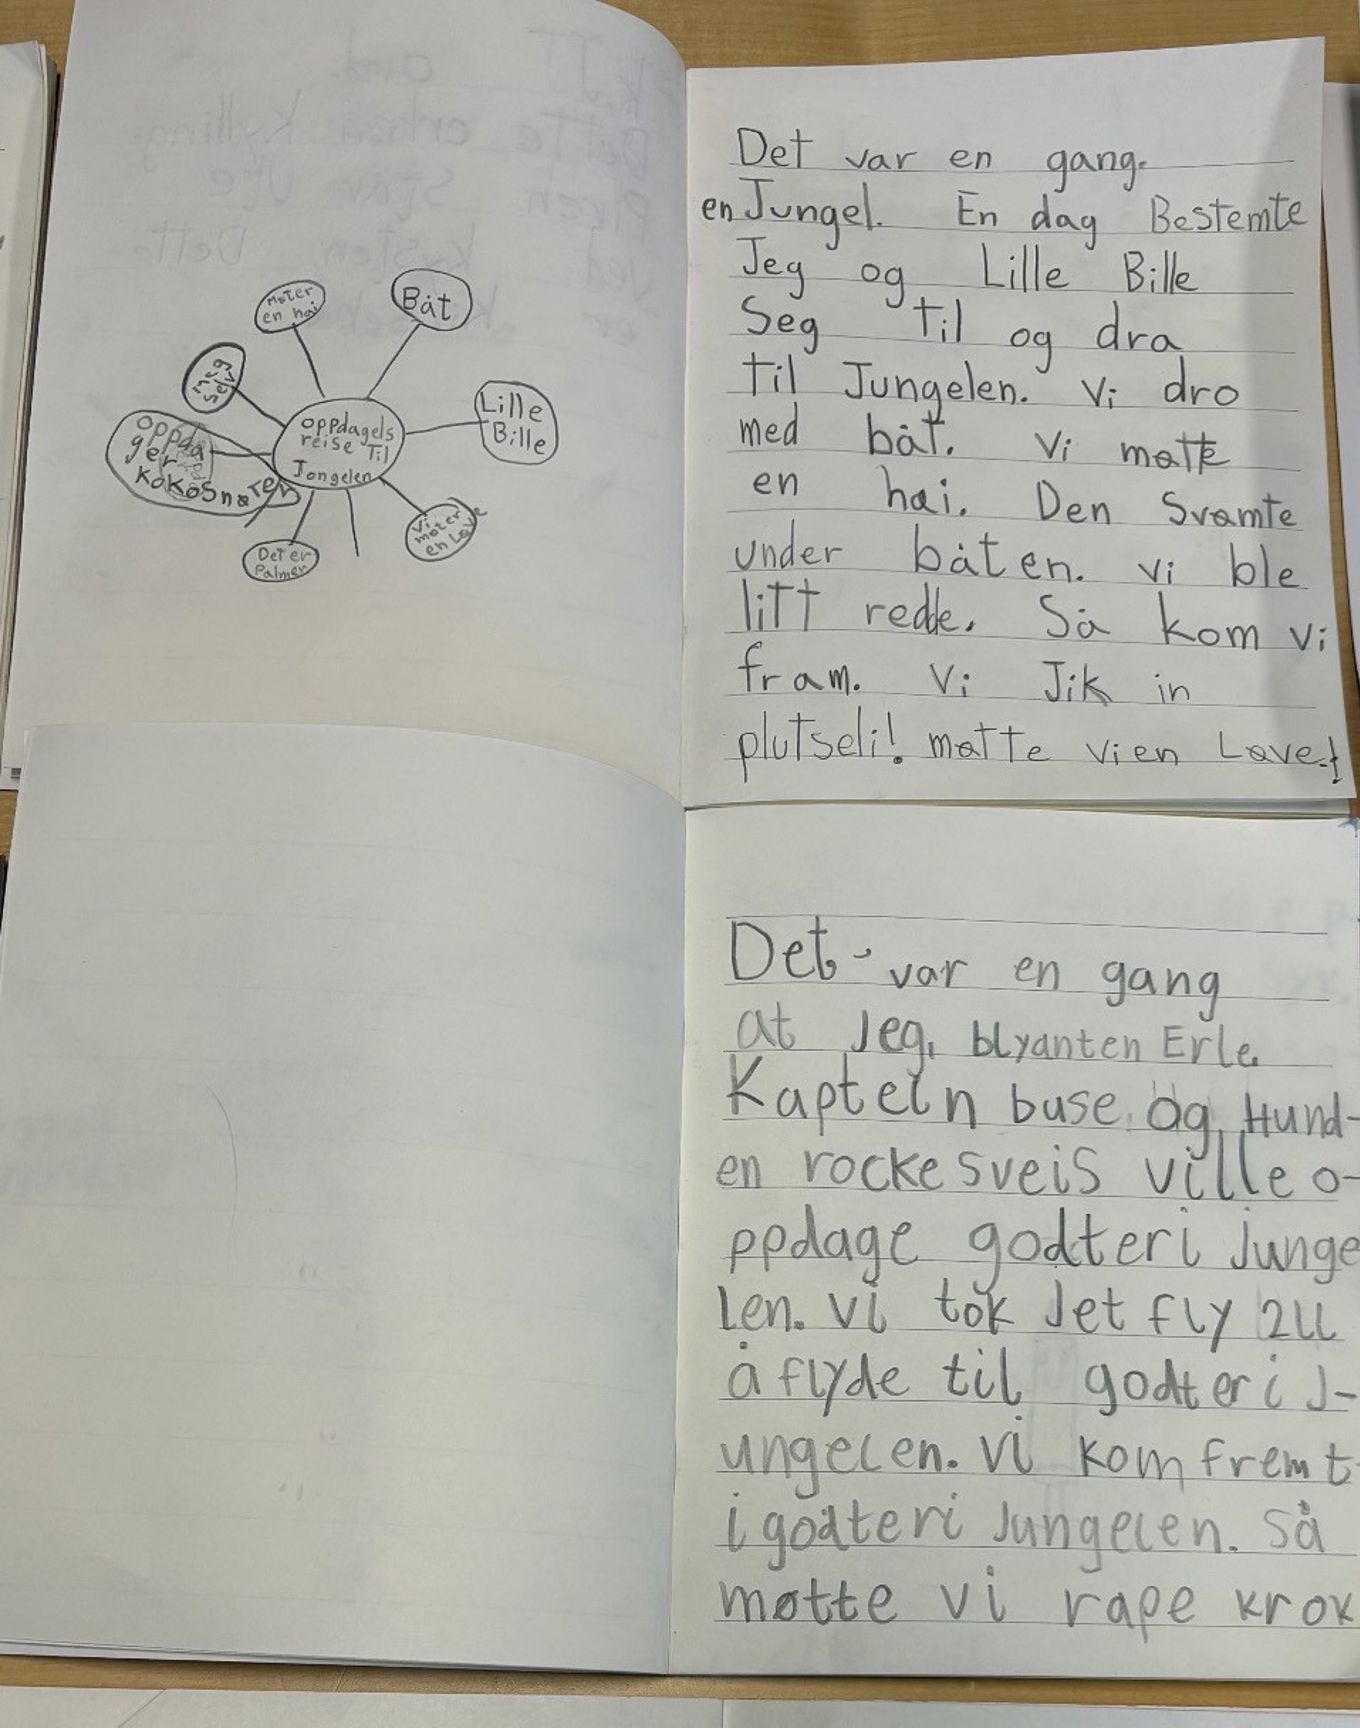 Møter
en hai
Båt
meg
selv
Lille
Bille
oppdagels
reise til
Jongelen
oppda
ger
kokosnøren
Vi
møter
en Løve
Det er
Palmer
Det var en gang.
en Jungel. En dag Bestemte
Jeg og Lille Bille
Seg til og dra
til Jungelen. Vi dro
med båt. Vi møtte
en hai. Den Svømte
under båten. Vi ble
litt redde. Så kom vi
fram. Vi Jik in
plutseli! møtte vi en Løve!
Det var en gang
at Jeg, blyanten Erle.
Kaptein buse og Hund-
en rockesveis ville o-
ppdage godteri Junge
len. Vi tok Jet fly 2LL
å flyde til godteri J-
ungelen. Vi kom frem t
i godteri Jungelen. Så
møtte vi rape krok